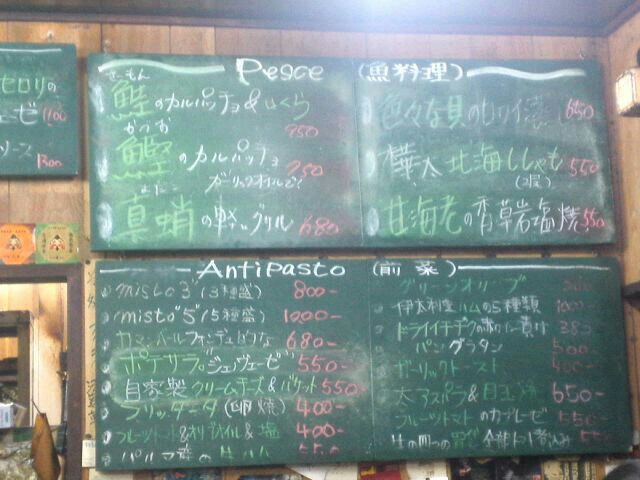 セロリの
ーゼ 1100
ソース 1300
Pesce (魚料理)
さーもん
鮭のカルパッチョ&いくら
950
かつお
鰹のカルパッチョ 750
ガーリックオイルで!
真蛸の軽いグリル 680
色々な貝の白ワイン蒸 650
樺太北海ししゃも 550
甘海老の香草岩塩焼 550
Antipasto (前菜)
misto 3 (3種盛) 800-
misto 5 (5種盛) 1200-
カマンベールフォンデュ 680-
ポテサラ。"ジェノヴェーゼ" 550-
自家製クリームチーズ&バゲット 550-
フリッタータ(卵焼) 400-
フルーツトマト&オリーブオイル&塩 400-
パルマ産の生ハム 550
グリーンオリーブ
伊太利産ハムの5種類 1000-
ドライイチジクの漬け 380
パングラタン 500-
ガーリックトースト 400-
太アスパラ&目玉焼 650-
フルーツトマトのカプレーゼ 550-
煮込み 550